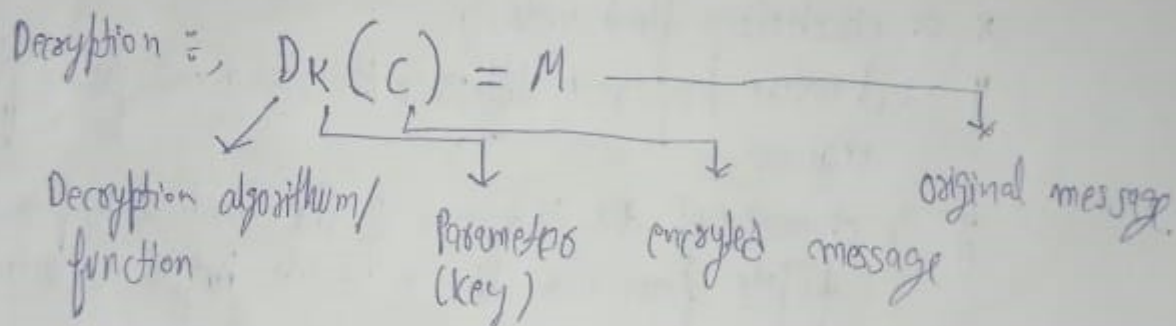 Decryption :, DK (C) = M
Decryption algorithum/
function
Parameter
(key)
encryted message
original message.